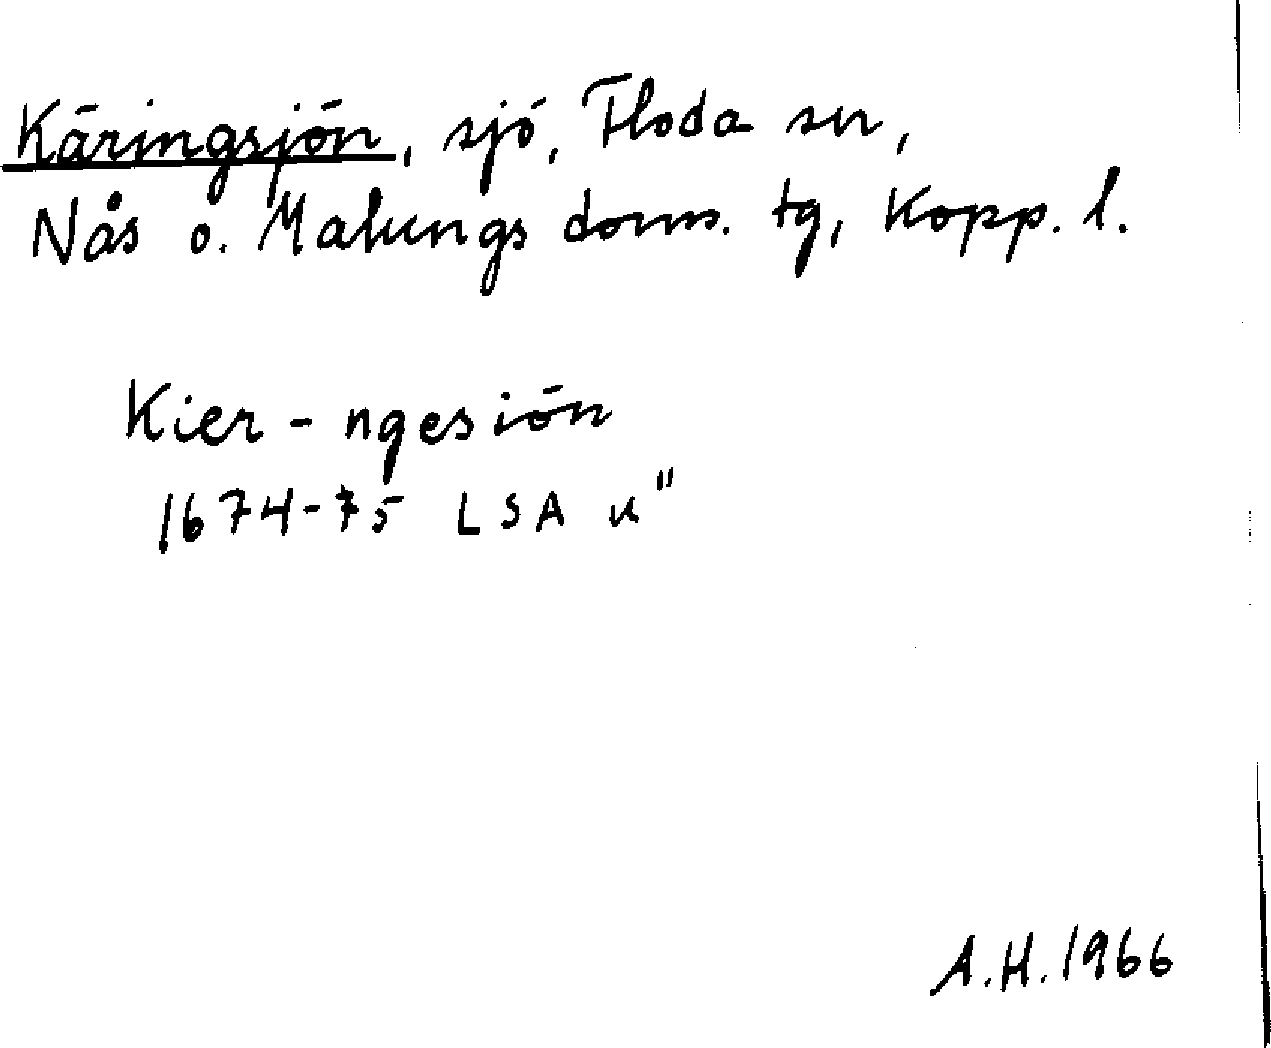 Käringsjön, sjö, Floda sn,
Nås o. Malungs doms. tg, Kopp. l.
Kier - ngesiön
1674-75 LSA u"
A.H. 1966